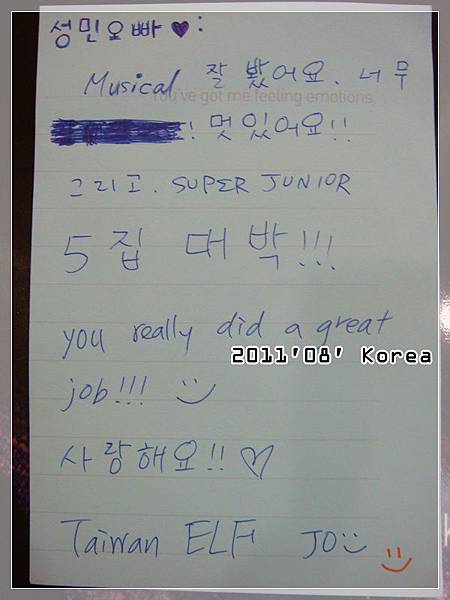 성민오빠♥:
Musical 잘 봤어요. 너무
You've got me feeling emotions
! 멋있어요!!
그리고. SUPER JUNIOR
5집 대박!!!
you really did a great
2011'08' Korea
job!!!
사랑해요!!♡
Taiwan ELF JO